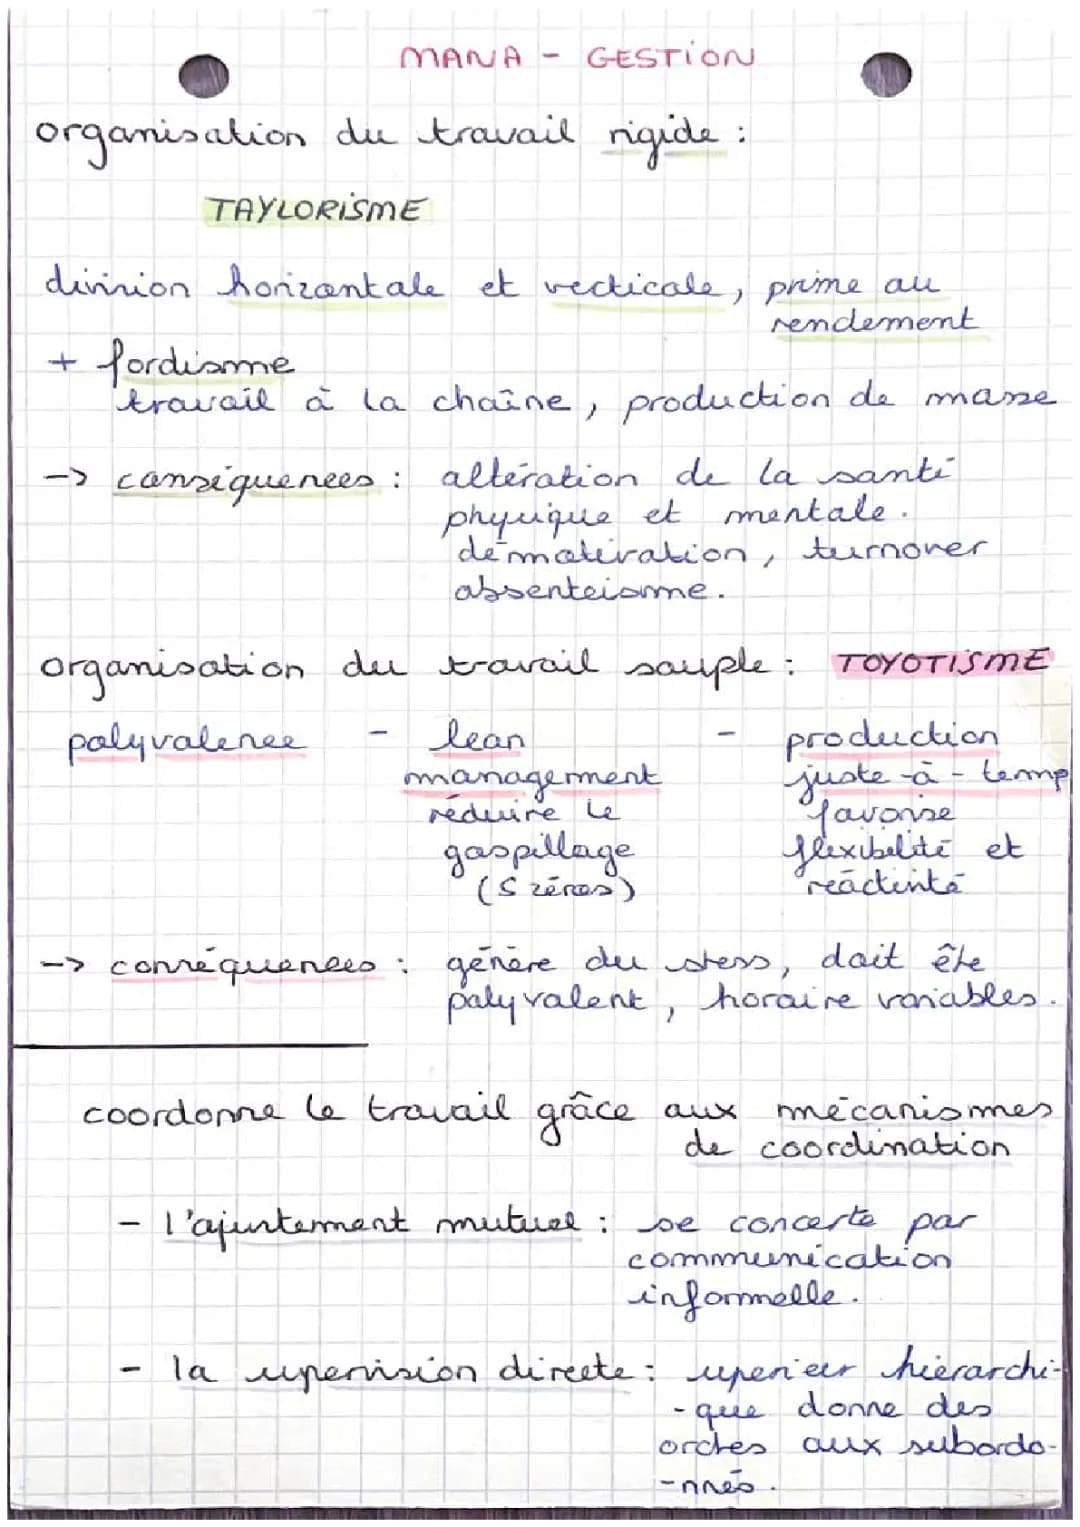 MANA - GESTION
organisation du travail rigide :
TAYLORISME
division horizontale et verticale, prime au
rendement
+ fordisme
travail à la chaîne, production de masse
-> conséquences : altération de la santé
physique et mentale.
démotivation, turnover
absenteisme.
organisation du travail souple : TOYOTISME
polyvalence - lean - production
management juste-à-temp
réduire le favorise
gaspillage flexibilité et
(5 zéros) réactivité
-> conséquences : génère du stress, doit être
polyvalent, horaire variables.
coordonne le travail grâce aux mécanismes
de coordination
- l'ajustement mutuel : se concerte par
communication
informelle.
- la supervision directe : superieur hiérarchi-
-que donne des
ordres aux subordo-
-nnés.